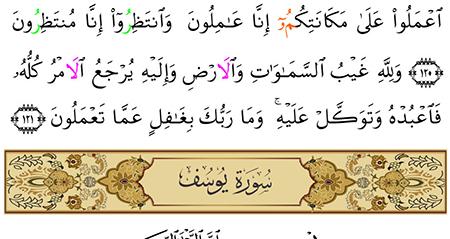 اَعْمَلُواْ عَلَىٰ مَكَانَتِكُمُۥٓ إِنَّا عَٰمِلُونَ وَانتَظِرُوٓاْ إِنَّا مُنتَظِرُونَ
١٢٠ وَلِلَّهِ غَيْبُ السَّمَٰوَٰتِ وَالَارْضِ وَإِلَيْهِ يُرْجَعُ الَامْرُ كُلُّهُۥ
فَاعْبُدْهُ وَتَوَكَّلْ عَلَيْهِۖ وَمَا رَبُّكَ بِغَٰفِلٍ عَمَّا تَعْمَلُونَ ١٢١
سُورَةُ يُوسُفَ